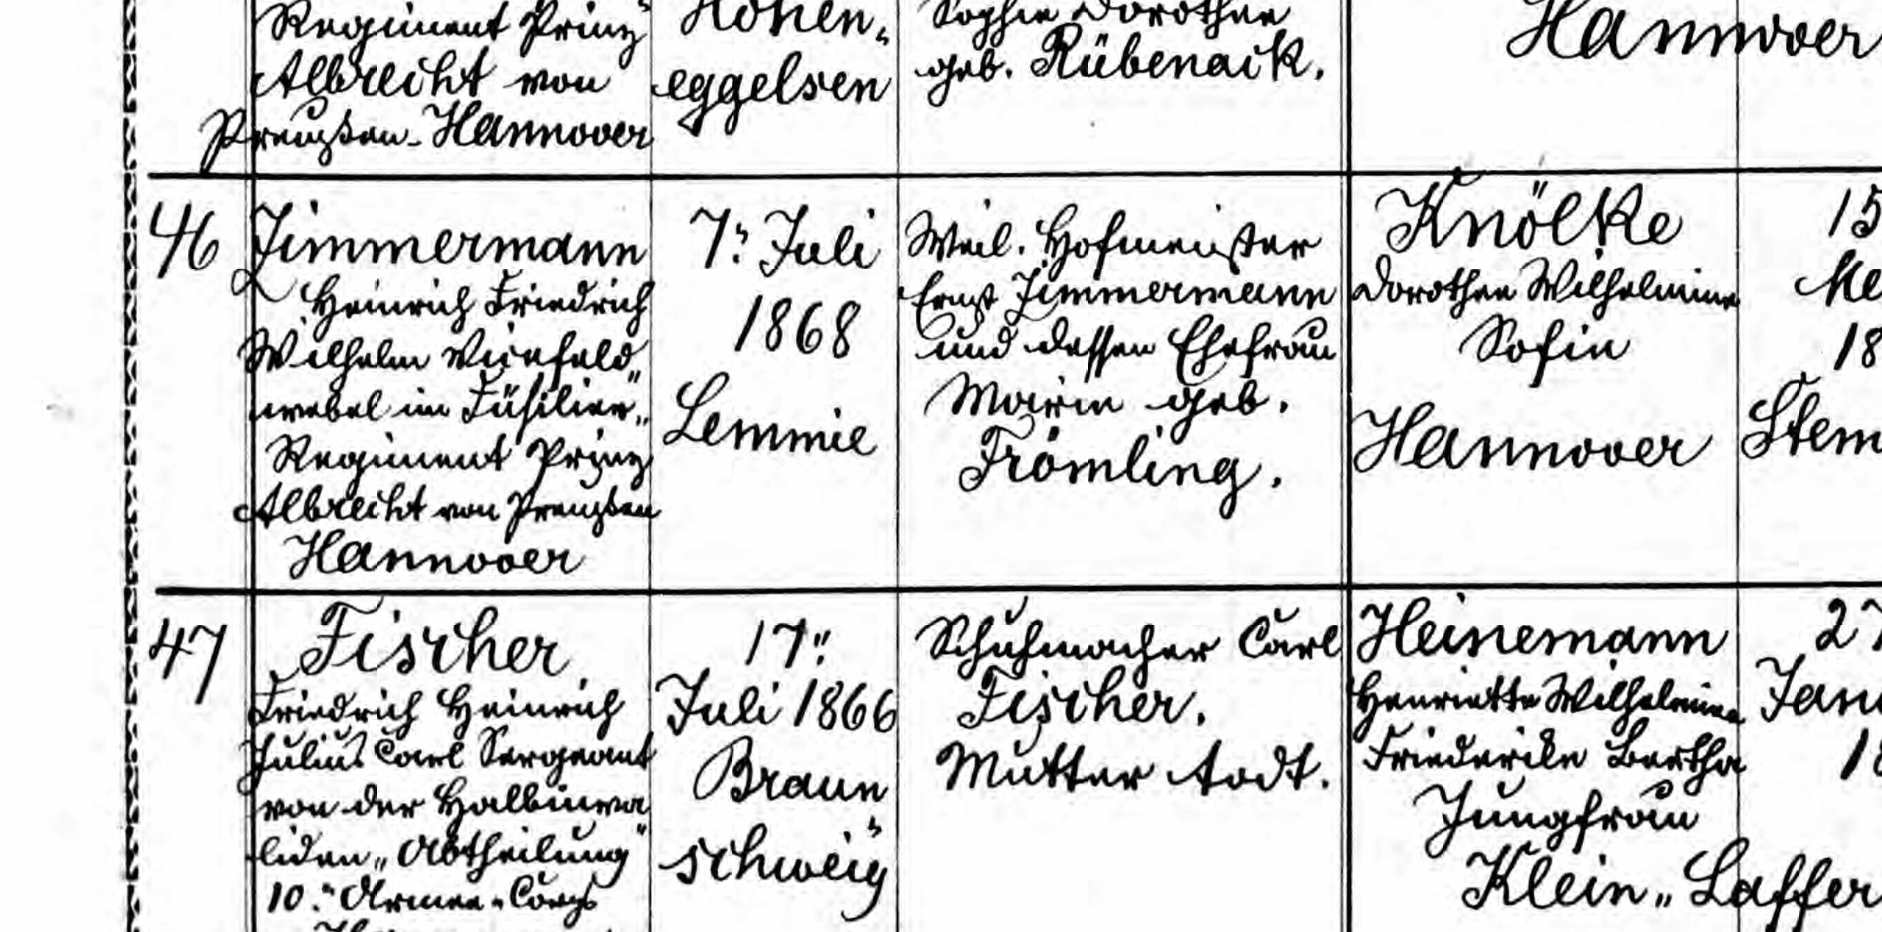 Regiment Prinz
Albrecht von
Preußen-Hannover
Hohen„
eggelsen
Sophie Dorothee
geb. Rübenack.
Hannover
46
Zimmermann
Heinrich Friedrich
Wilhelm Vicefeld„
webel im Füsilier„
Regiment Prinz
Albrecht von Preußen
Hannover
7: Juli
1868
Lemmie
Weil. Hofmeister
Ernst Zimmermann
und dessen Ehefrau
Marie geb.
Frömling.
Knölke
Dorothee Wilhelmine
Sofie
Hannover
15
18
Stem
47
Fischer
Friedrich Heinrich
Julius Carl Sergeant
von der Halbinva
liden„Abtheilung
10: Armee-Corps
17:
Juli 1866
Braun„
schweig
Schuhmacher Carl
Fischer.
Mutter todt.
Heinemann
Henriette Wilhelmine
Friederike Bertha
Jungfrau
Klein„Laffer
27
Jan
18